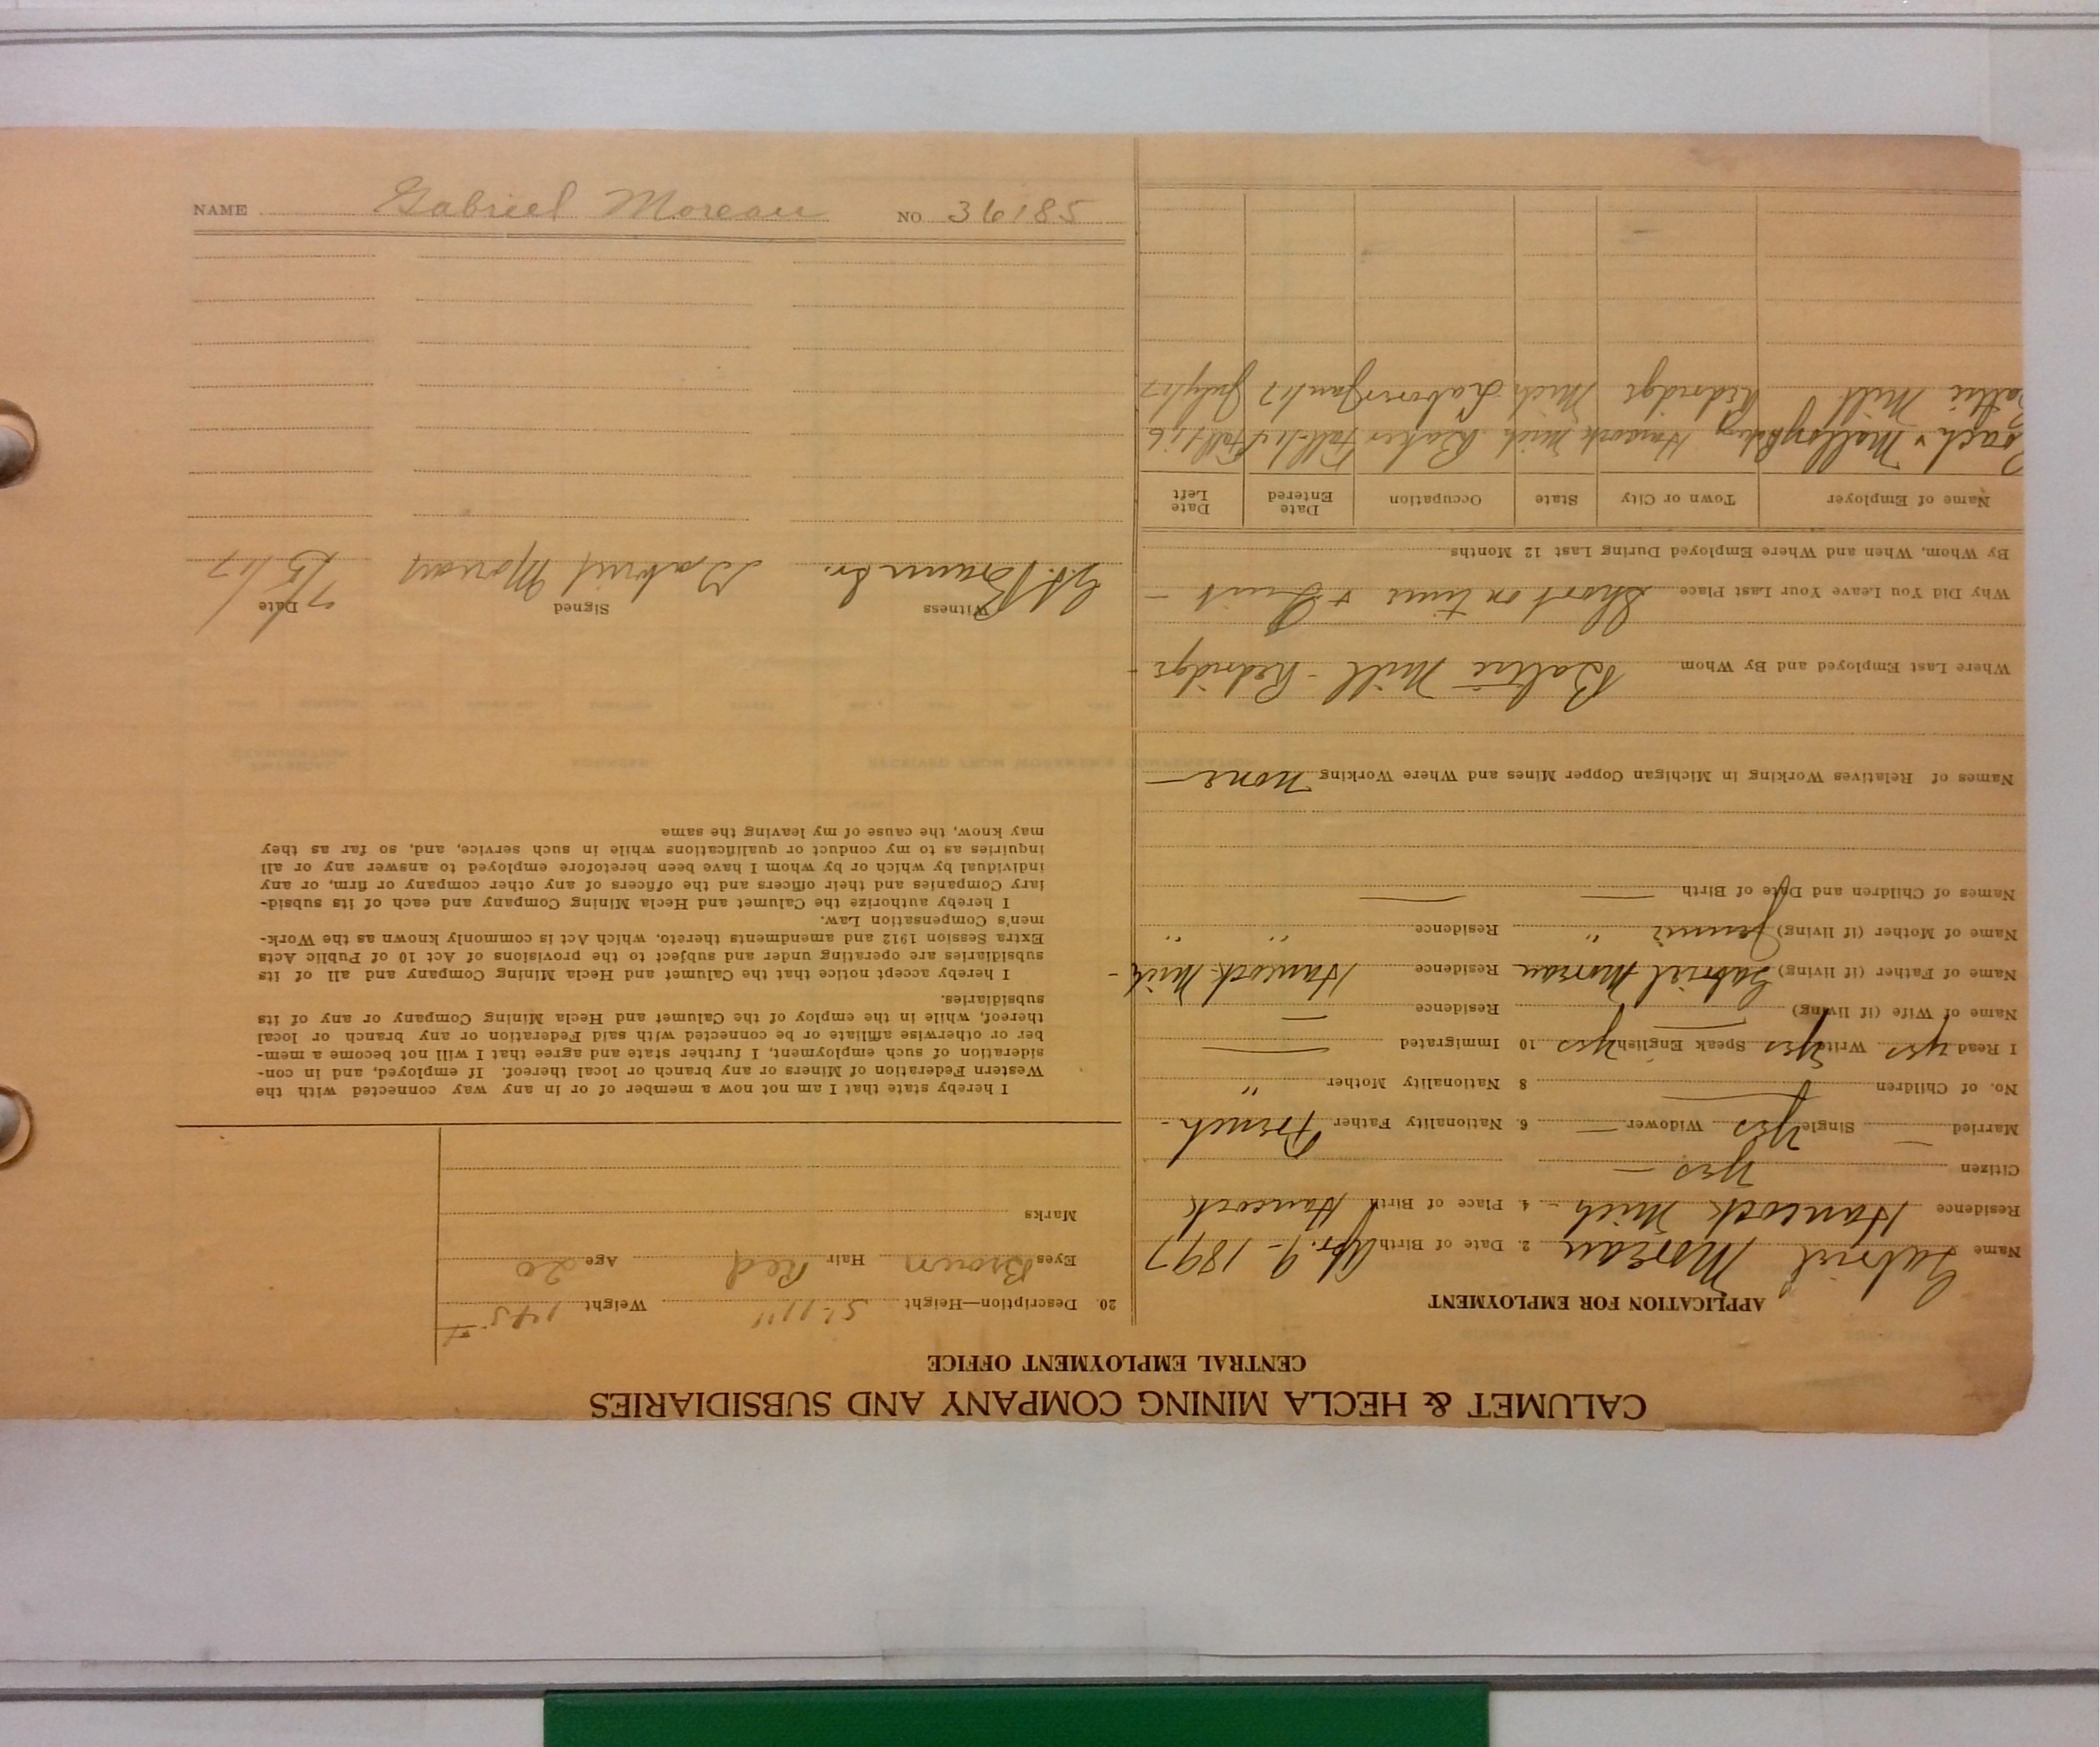 CALUMET & HECLA MINING COMPANY AND SUBSIDIARIES
CENTRAL EMPLOYMENT OFFICE
APPLICATION FOR EMPLOYMENT
Name Gabriel Moreau 2. Date of Birth Apr. 9-1897
Residence Hancock Mich - 4. Place of Birth Hancock
Citizen Yes -
Married — Single Yes Widower — 6. Nationality Father French -
No. of Children — 8 Nationality Mother "
I Read yes Write Yes Speak English yes 10 Immigrated —
Name of Wife (if living) — Residence —
Name of Father (if living) Gabriel Moreau Residence Hancock Mich -
Name of Mother (if living) Jennie " Residence " "
Names of Children and Date of Birth — —
Names of Relatives Working in Michigan Copper Mines and Where Working None —
Where Last Employed and By Whom Baltic Mill - Redridge -
Why Did You Leave Your Last Place Short on time & Quit -
By Whom, When and Where Employed During Last 12 Months
Name of Employer Town or City State Occupation Date Entered Date Left
Mallory Hancock Mich Baker Fall-16 Fall 16
Mill Redridge Mich Laborer Jan 17 July 17
20. Description—Height 5'-11" Weight 145 #
Eyes Brown Hair Red Age 20
Marks
I hereby state that I am not now a member of or in any way connected with the
Western Federation of Miners or any branch or local thereof. If employed, and in con-
sideration of such employment, I further state and agree that I will not become a mem-
ber or otherwise affiliate or be connected with said Federation or any branch or local
thereof, while in the employ of the Calumet and Hecla Mining Company or any of its
subsidiaries.
I hereby accept notice that the Calumet and Hecla Mining Company and all of its
subsidiaries are operating under and subject to the provisions of Act 10 of Public Acts
Extra Session 1912 and amendments thereto, which Act is commonly known as the Work-
men's Compensation Law.
I hereby authorize the Calumet and Hecla Mining Company and each of its subsid-
iary Companies and their officers and the officers of any other company or firm, or any
individual by which or by whom I have been heretofore employed to answer any or all
inquiries as to my conduct or qualifications while in such service, and, so far as they
may know, the cause of my leaving the same
Witness Signed Date
Gabriel Moreau 7/5/17
NAME Gabriel Moreau NO 36185